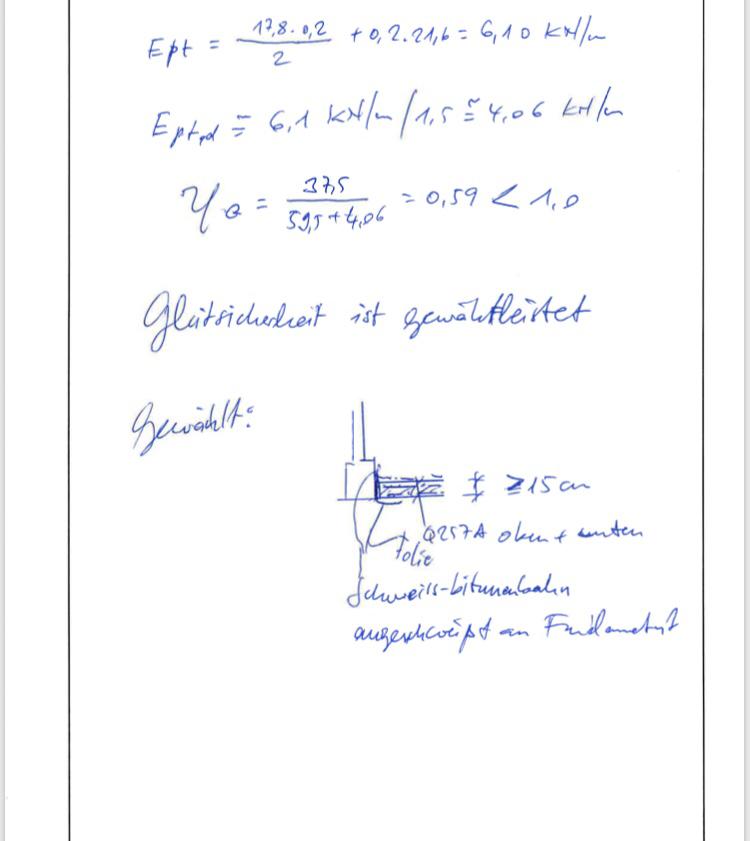 Ept = 17,8 · 0,2 / 2 + 0,2 · 21,6 = 6,10 kN/m
Ept,d ≅ 6,1 kN/m / 1,5 ≅ 4,06 kN/m
η G = 37,5 / 59,5 + 4,06 = 0,59 < 1,0
Gleitsicherheit ist gewährleistet
Gewählt:
≥ 15 cm
Q257A oben + unten
Folie
Schweiss-bitumenbahn
angeschweißt an